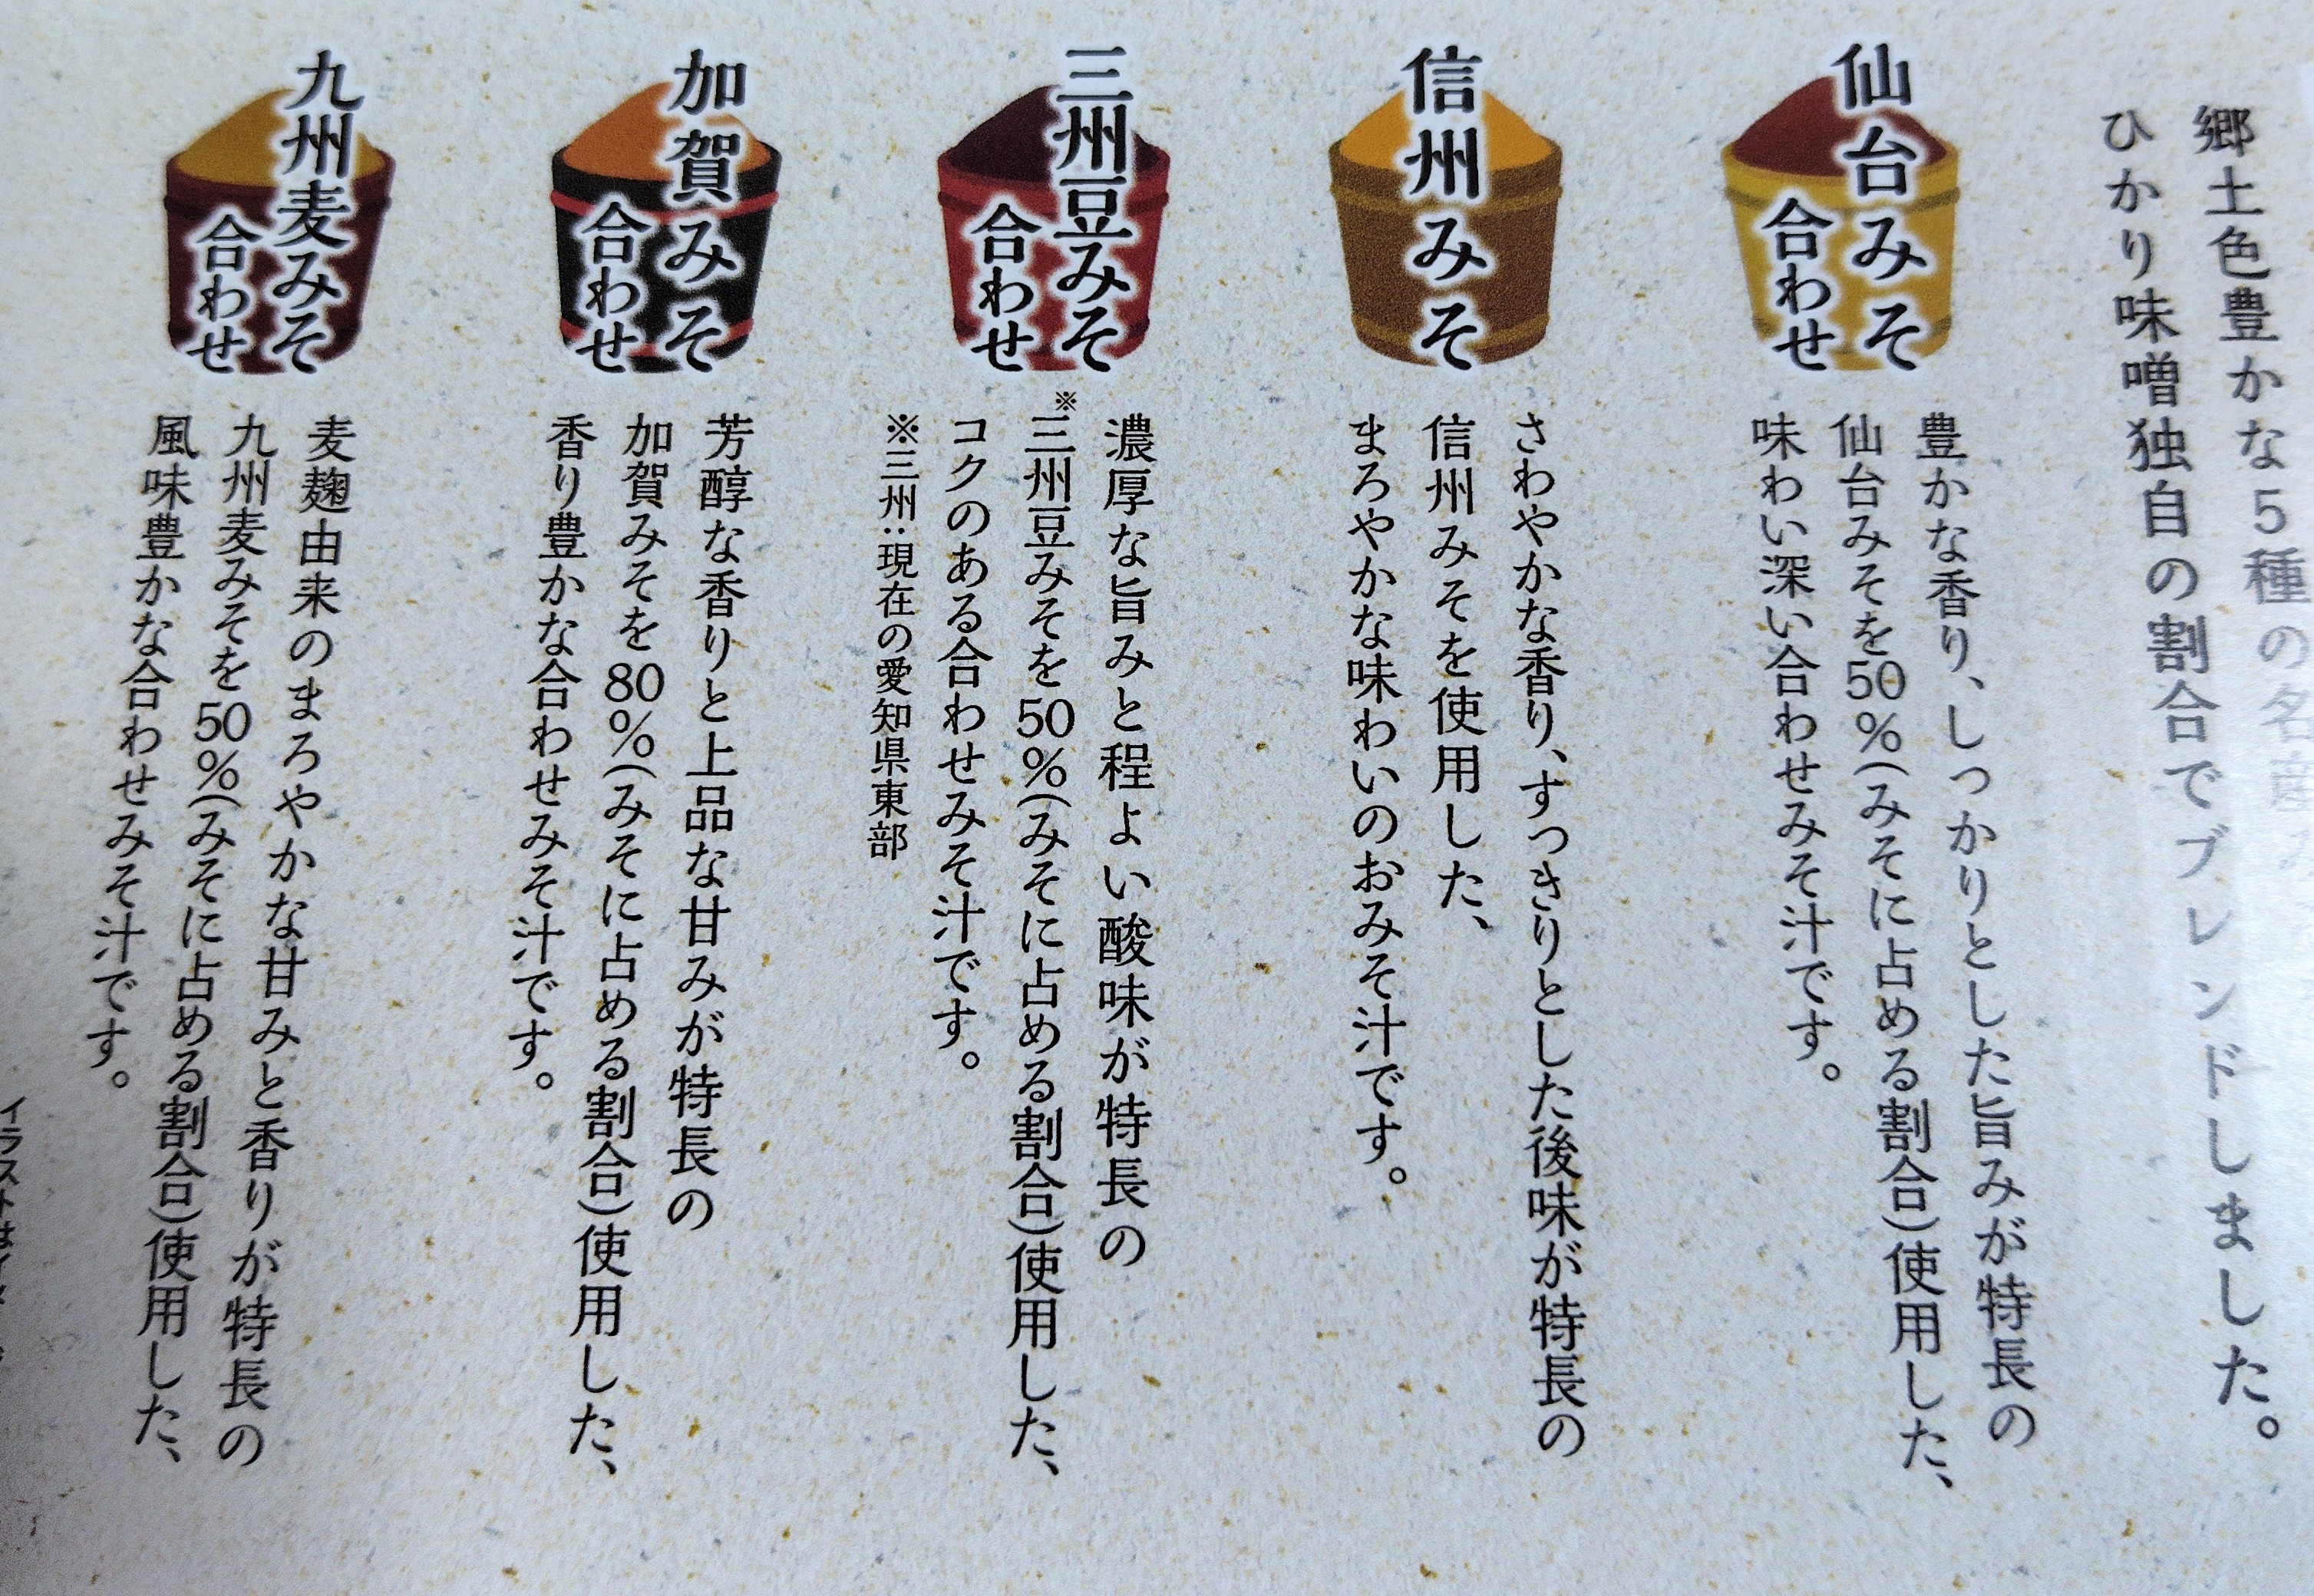 郷土色豊かな5種の名
ひかり味噌独自の割合でブレンドしました。
仙台みそ
合わせ
豊かな香り、しっかりとした旨みが特長の
仙台みそを50%(みそに占める割合)使用した、
味わい深い合わせみそ汁です。
信州みそ
さわやかな香り、すっきりとした後味が特長の
信州みそを使用した、
まろやかな味わいのおみそ汁です。
三州豆みそ
合わせ
濃厚な旨みと程よい酸味が特長の
※三州豆みそを50%(みそに占める割合)使用した、
コクのある合わせみそ汁です。
※三州:現在の愛知県東部
加賀みそ
合わせ
芳醇な香りと上品な甘みが特長の
加賀みそを80%(みそに占める割合)使用した、
香り豊かな合わせみそ汁です。
九州麦みそ
合わせ
麦麹由来のまろやかな甘みと香りが特長の
九州麦みそを50%(みそに占める割合)使用した、
風味豊かな合わせみそ汁です。
イラストは